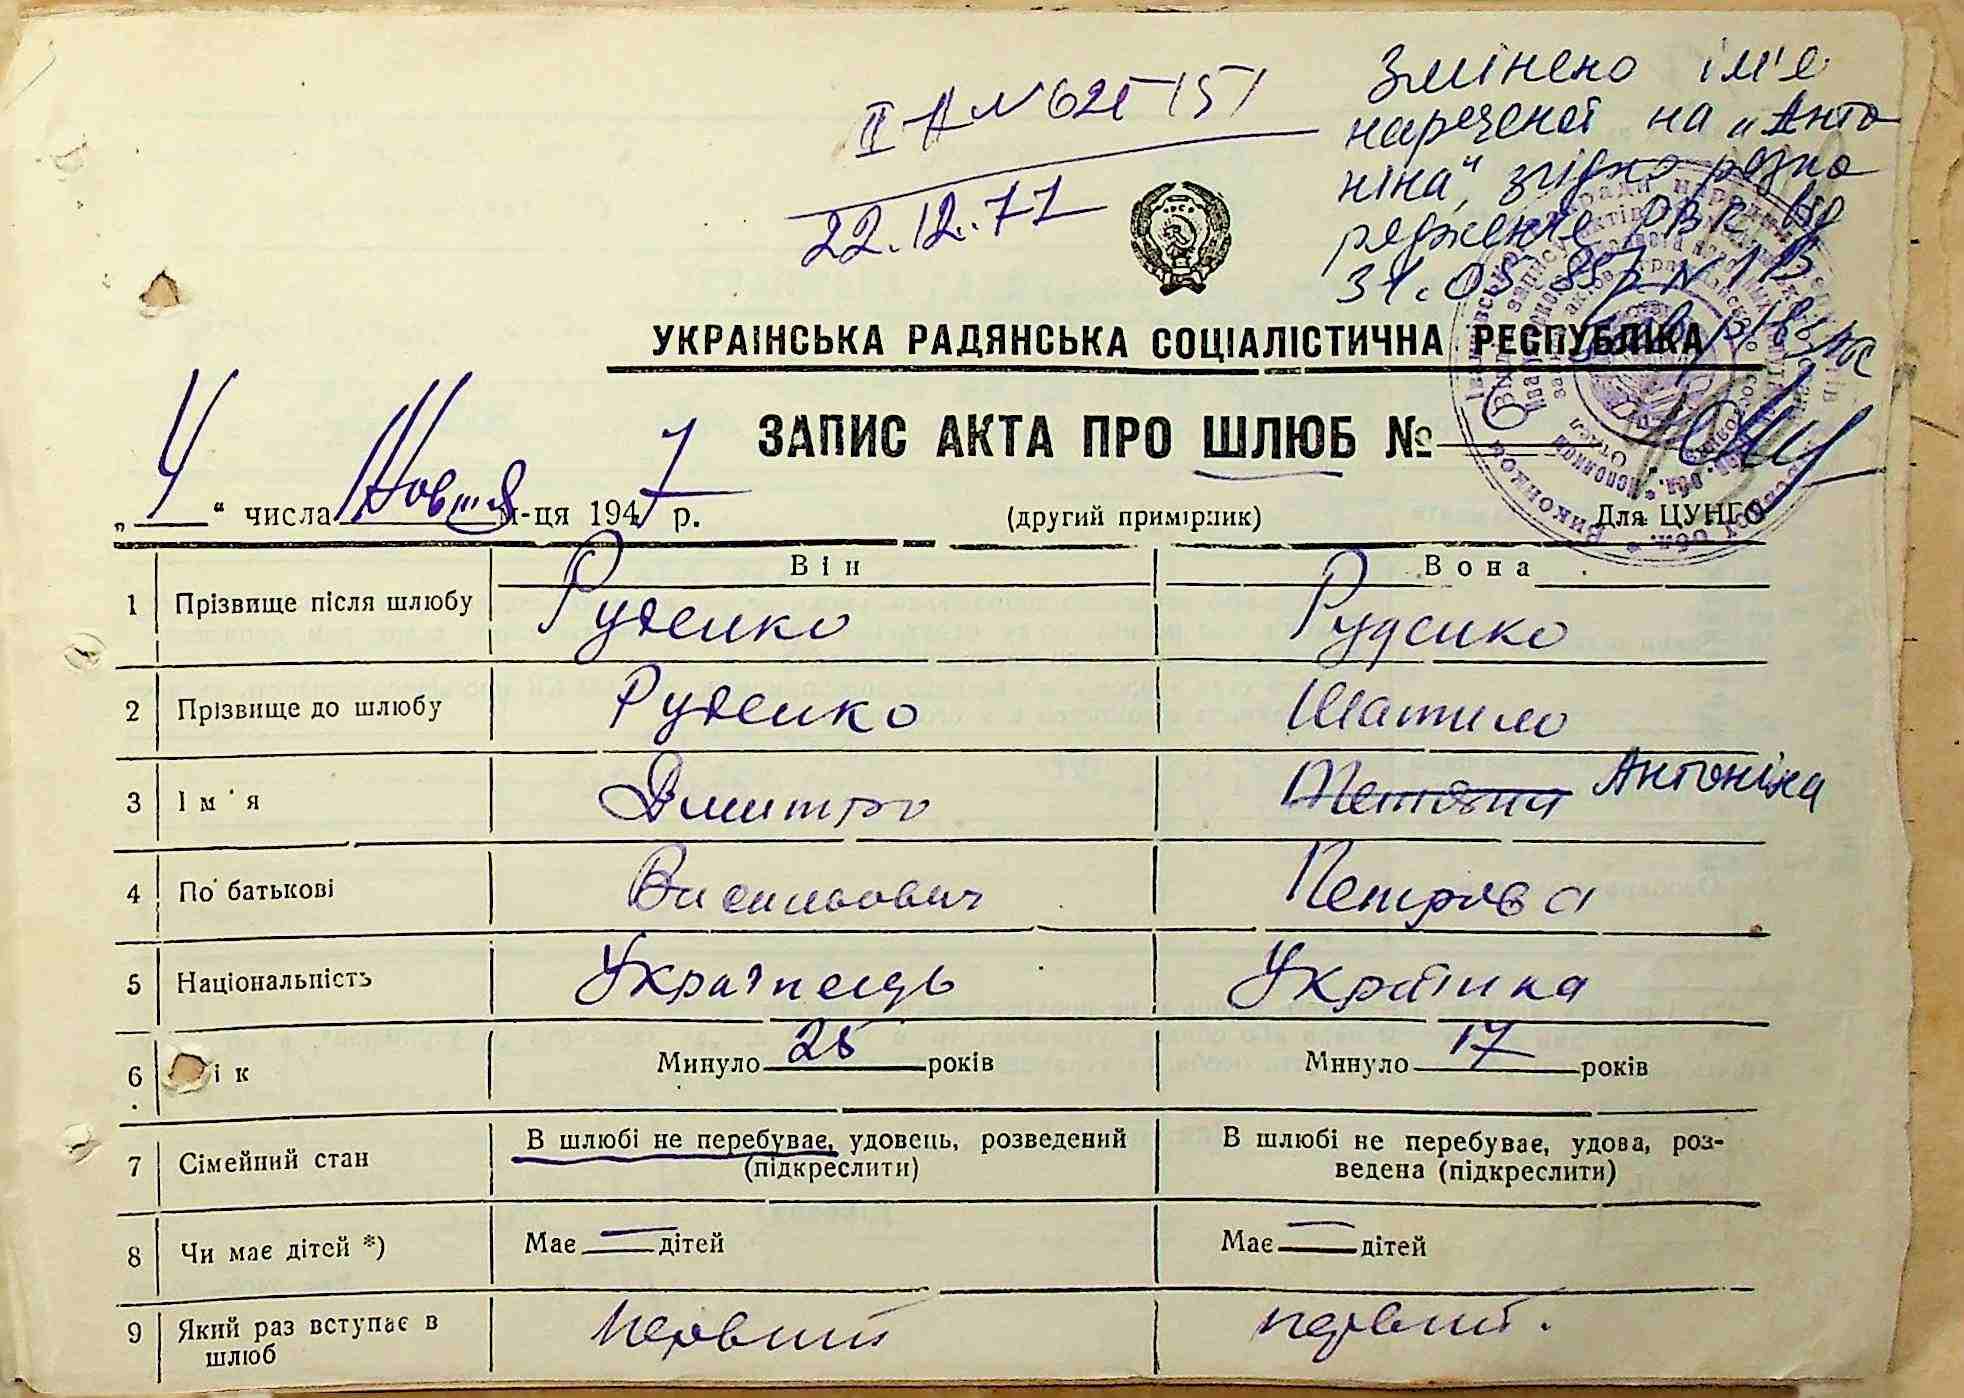 II-А № 625151
22.12.77
Змінено ім'я
нареченої на „Анто
ніна", згідно розпо
рядження РВК від
31.05.85 р. №
УКРАЇНСЬКА РАДЯНСЬКА СОЦІАЛІСТИЧНА РЕСПУБЛІКА
ЗАПИС АКТА ПРО ШЛЮБ №
„ 4 “ числа Новтня м-ця 1947 р. (другий примірник) Для ЦУНГО
Він Вона
1 Прізвище після шлюбу Руденко Руденко
2 Прізвище до шлюбу Руденко Шатило
3 Ім'я Дмитро Тетяна Антоніна
4 По батькові Васильович Петрівна
5 Національність Українець Українка
6 ік Минуло 25 років Минуло 17 років
7 Сімейний стан В шлюбі не перебуває, удовець, розведений В шлюбі не перебуває, удова, роз-
(підкреслити) ведена (підкреслити)
8 Чи має дітей *) Має — дітей Має — дітей
9 Який раз вступає в первий первий.
шлюб